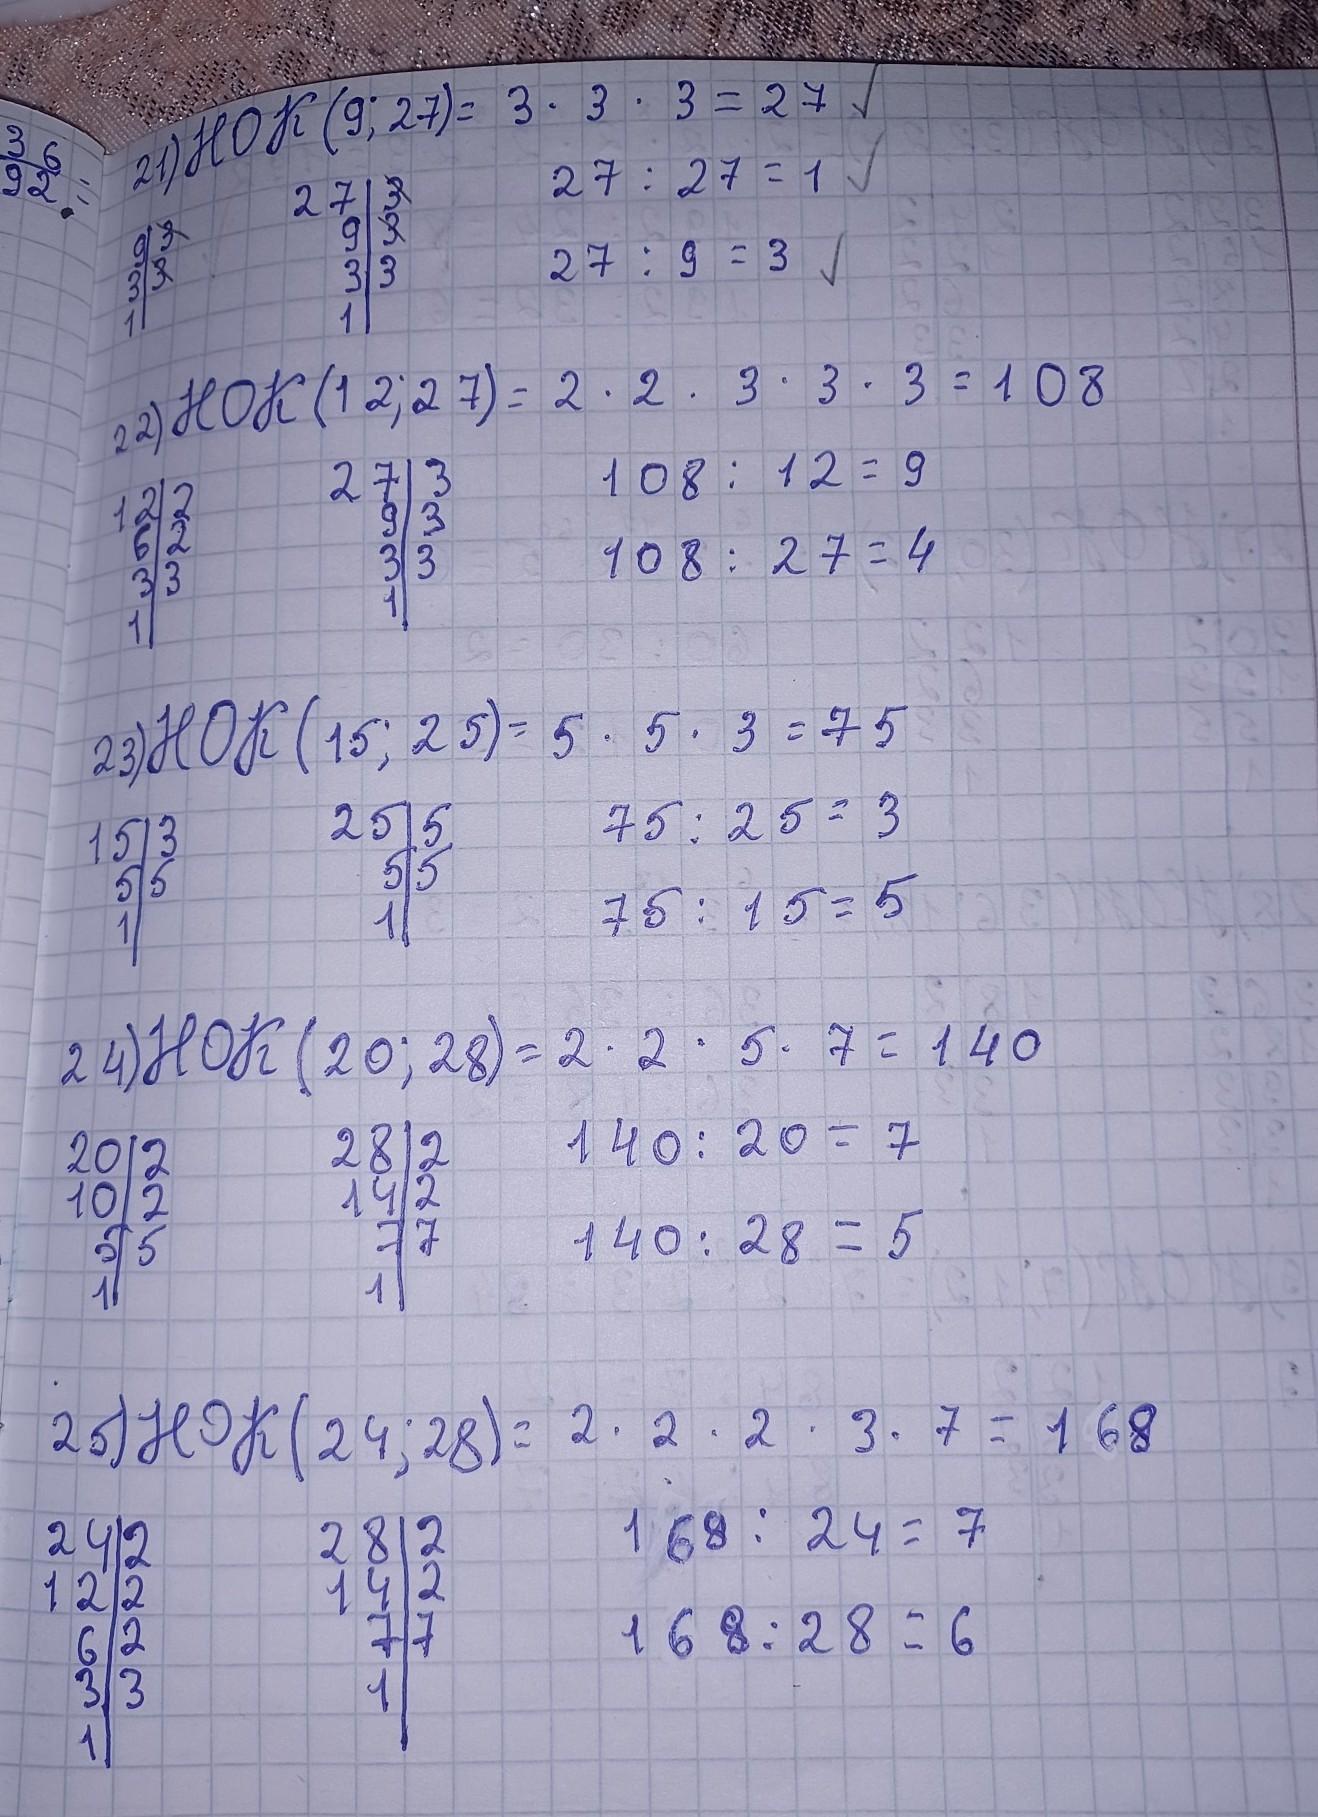 3 6
93 26 =
21) НОК (9; 27) = 3 · 3 · 3 = 27 ✓
27 | 3 27 : 27 = 1 ✓
9 | 3 9 | 3
3 | 3 3 | 3 27 : 9 = 3 ✓
1 1
22) НОК (12; 27) = 2 · 2 · 3 · 3 · 3 = 108
12 | 2 27 | 3 108 : 12 = 9
6 | 2 9 | 3
3 | 3 3 | 3 108 : 27 = 4
1 1
23) НОК (15; 25) = 5 · 5 · 3 = 75
15 | 3 25 | 5 75 : 25 = 3
5 | 5 5 | 5
1 1 75 : 15 = 5
24) НОК (20; 28) = 2 · 2 · 5 · 7 = 140
20 | 2 28 | 2 140 : 20 = 7
10 | 2 14 | 2
5 | 5 7 | 7 140 : 28 = 5
1 1
25) НОК (24; 28) = 2 · 2 · 2 · 3 · 7 = 168
24 | 2 28 | 2 168 : 24 = 7
12 | 2 14 | 2
6 | 2 7 | 7 168 : 28 = 6
3 | 3 1
1